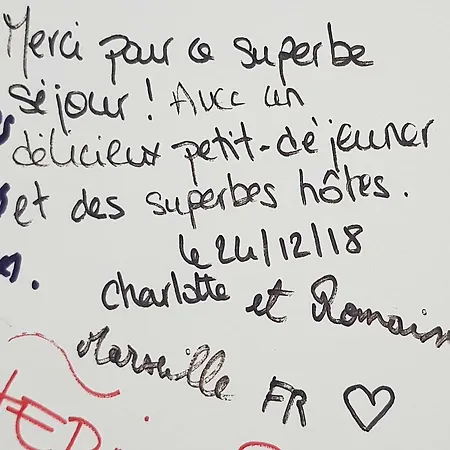 Merci pour ce superbe
séjour ! Avec un
délicieux petit-déjeuner
et des superbes hôtes.
le 24/12/18
Charlotte et Romain
Marseille FR ♡